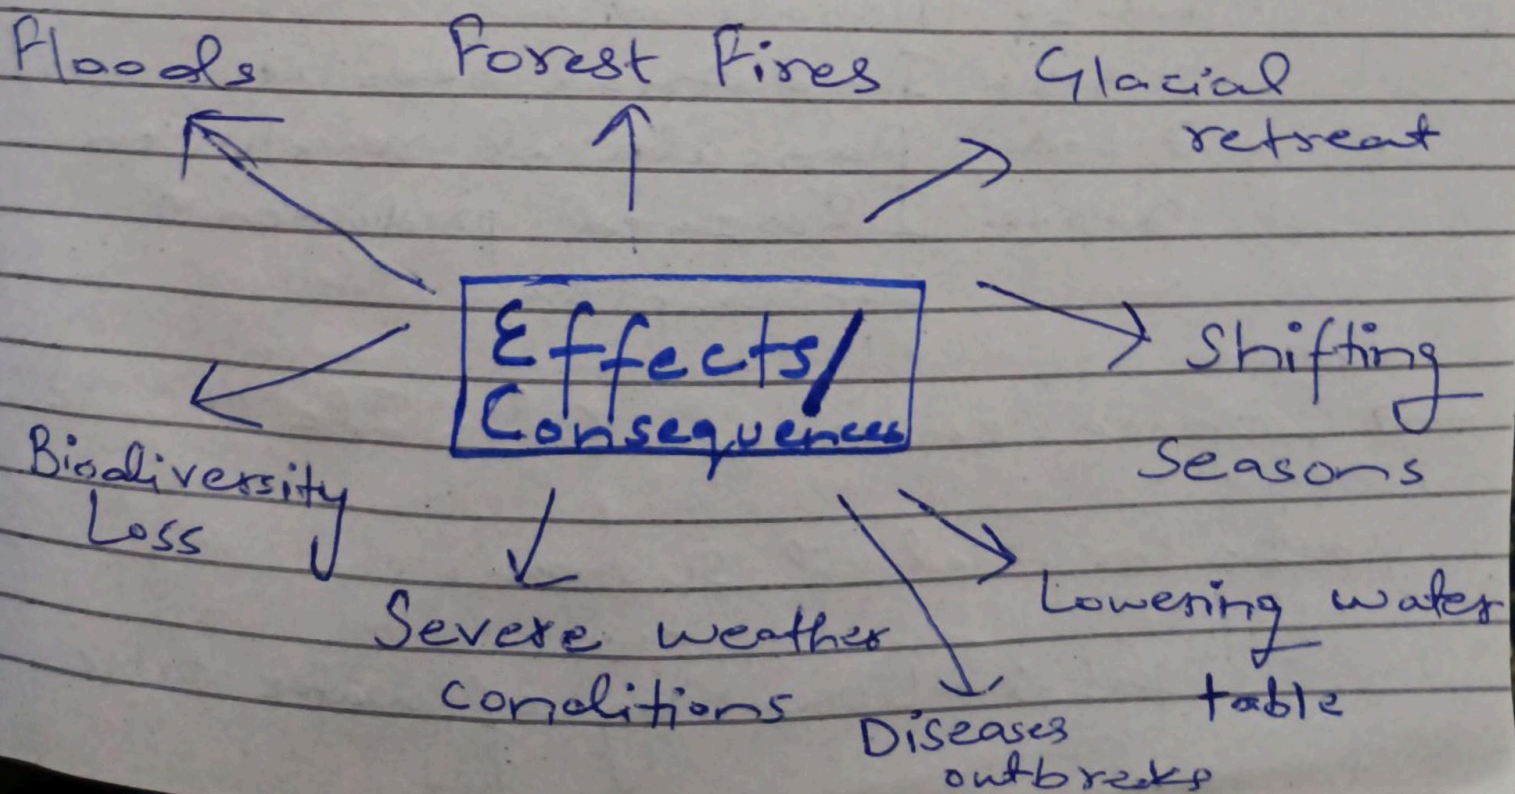 Floods
Forest Fires
Glacial
retreat
Effects/
Consequences
Shifting
Seasons
Biodiversity
Loss
Severe weather
conditions
Lowering water
table
Diseases
outbreaks